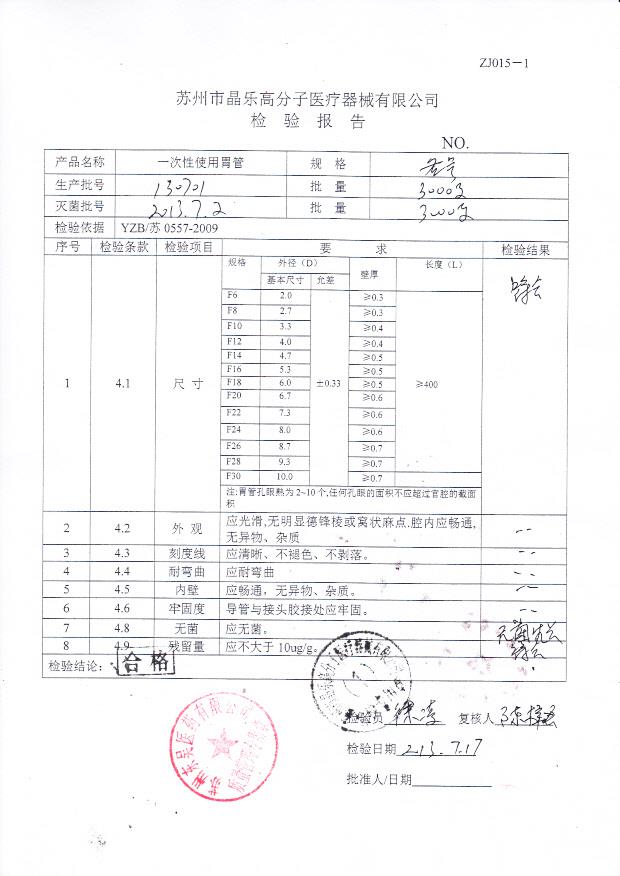 ZJ015-1
苏州市晶乐高分子医疗器械有限公司
检 验 报 告
NO.
产品名称 一次性使用胃管 规 格 各号
生产批号 130701 批 量 3000支
灭菌批号 2013.7.2 批 量 3000支
检验依据 YZB/苏 0557-2009
序号 检验条款 检验项目 要 求 检验结果
规格 外径（D） 壁厚 长度（L）
基本尺寸 允差
F6 2.0 ≥0.3
F8 2.7 ≥0.3
F10 3.3 ≥0.4
F12 4.0 ≥0.4
F14 4.7 ≥0.5
F16 5.3 ≥0.5
1 4.1 尺 寸 F18 6.0 ±0.33 ≥0.5 ≥400
F20 6.7 ≥0.6
F22 7.3 ≥0.6
F24 8.0 ≥0.6
F26 8.7 ≥0.7
F28 9.3 ≥0.7
F30 10.0 ≥0.7
注:胃管孔眼熟为 2~10 个,任何孔眼的面积不应超过官腔的截面
积
2 4.2 外 观 应光滑,无明显德锋棱或窝状麻点.腔内应畅通,
无异物、杂质
3 4.3 刻度线 应清晰、不褪色、不剥落。
4 4.4 耐弯曲 应耐弯曲
5 4.5 内壁 应畅通，无异物、杂质。
6 4.6 牢固度 导管与接头胶接处应牢固。
7 4.8 无菌 应无菌。
8 4.9 残留量 应不大于 10ug/g。
检验结论： 合格
检验员 复核人
检验日期 213.7.17
批准人/日期